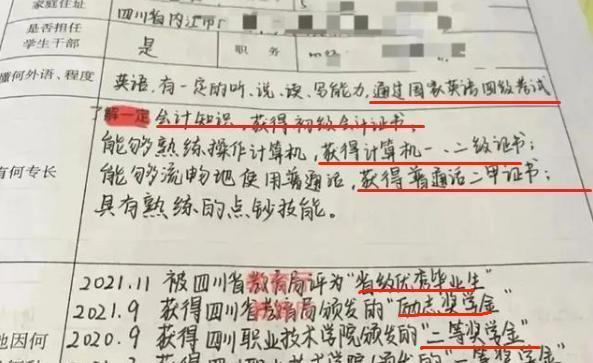 家庭住址
四川省内江市
是否担任
学生干部
是
职务
懂何外语、程度
英语,有一定的听、说、读、写能力,通过国家英语四级考试
了解一定会计知识,获得初级会计证书;
能够熟练操作计算机,获得计算机一、二级证书;
有何专长
能够流畅地使用普通话,获得普通话二甲证书;
具有熟练的点钞技能。
2021.11 被四川省教育局评为“省级优秀毕业生”
2021.9 获得四川省教育局颁发的“励志奖学金”
他因何
2020.9 获得四川职业技术学院颁发的“二等奖学金”